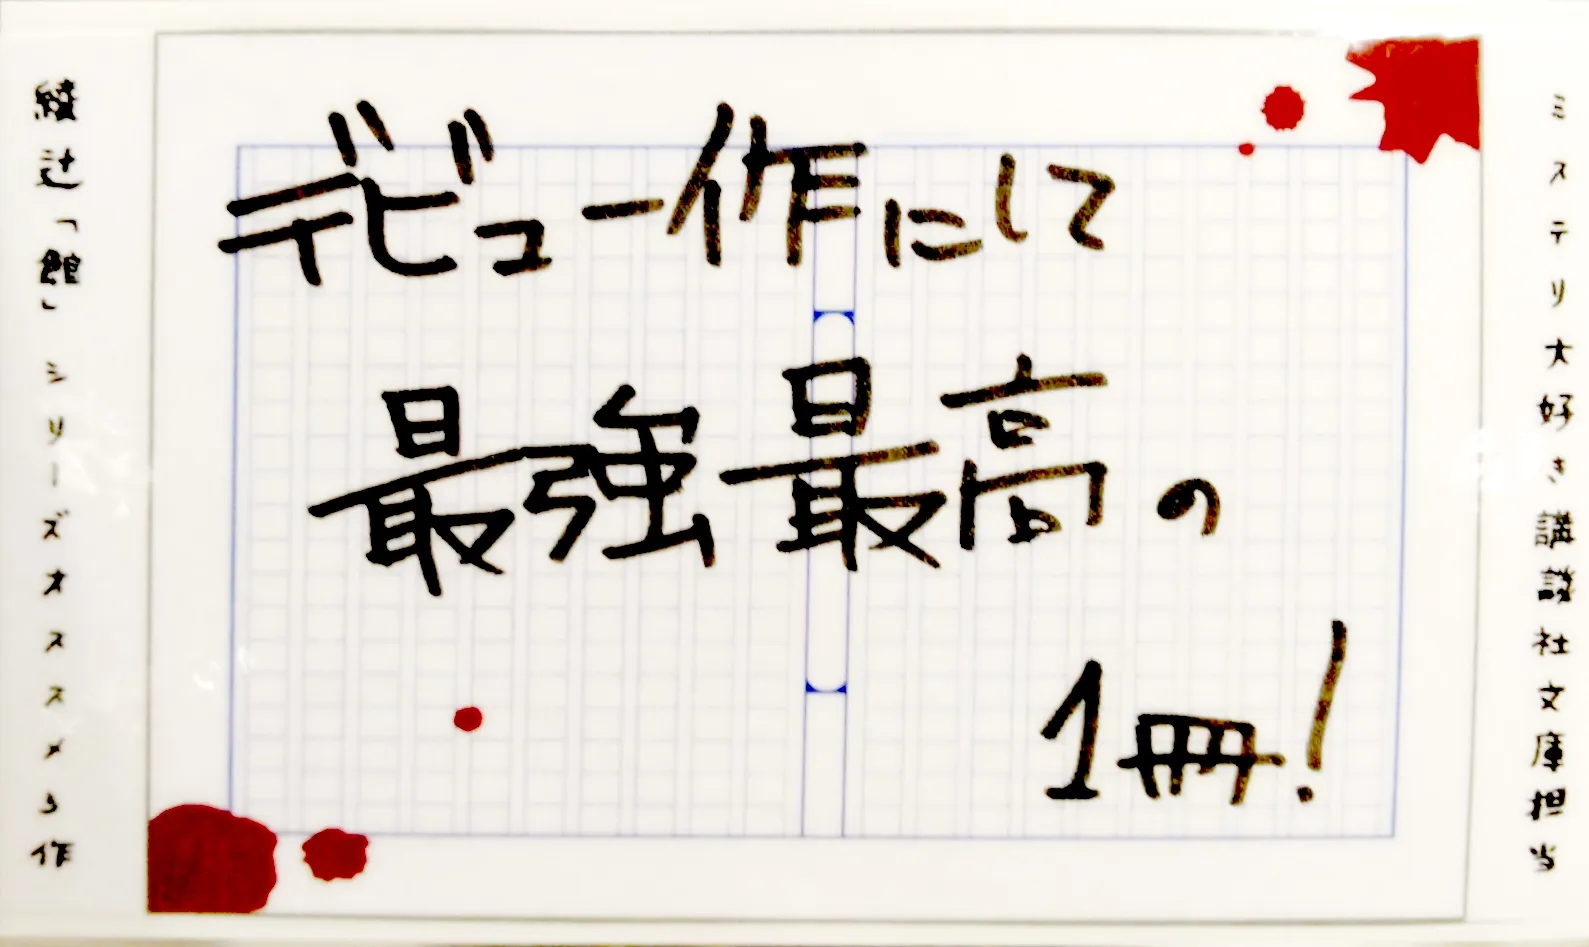 ミステリ大好き講談社文庫担当
デビュー作にして
最強最高の
1冊!
綾辻「館」シリーズオススメ3作